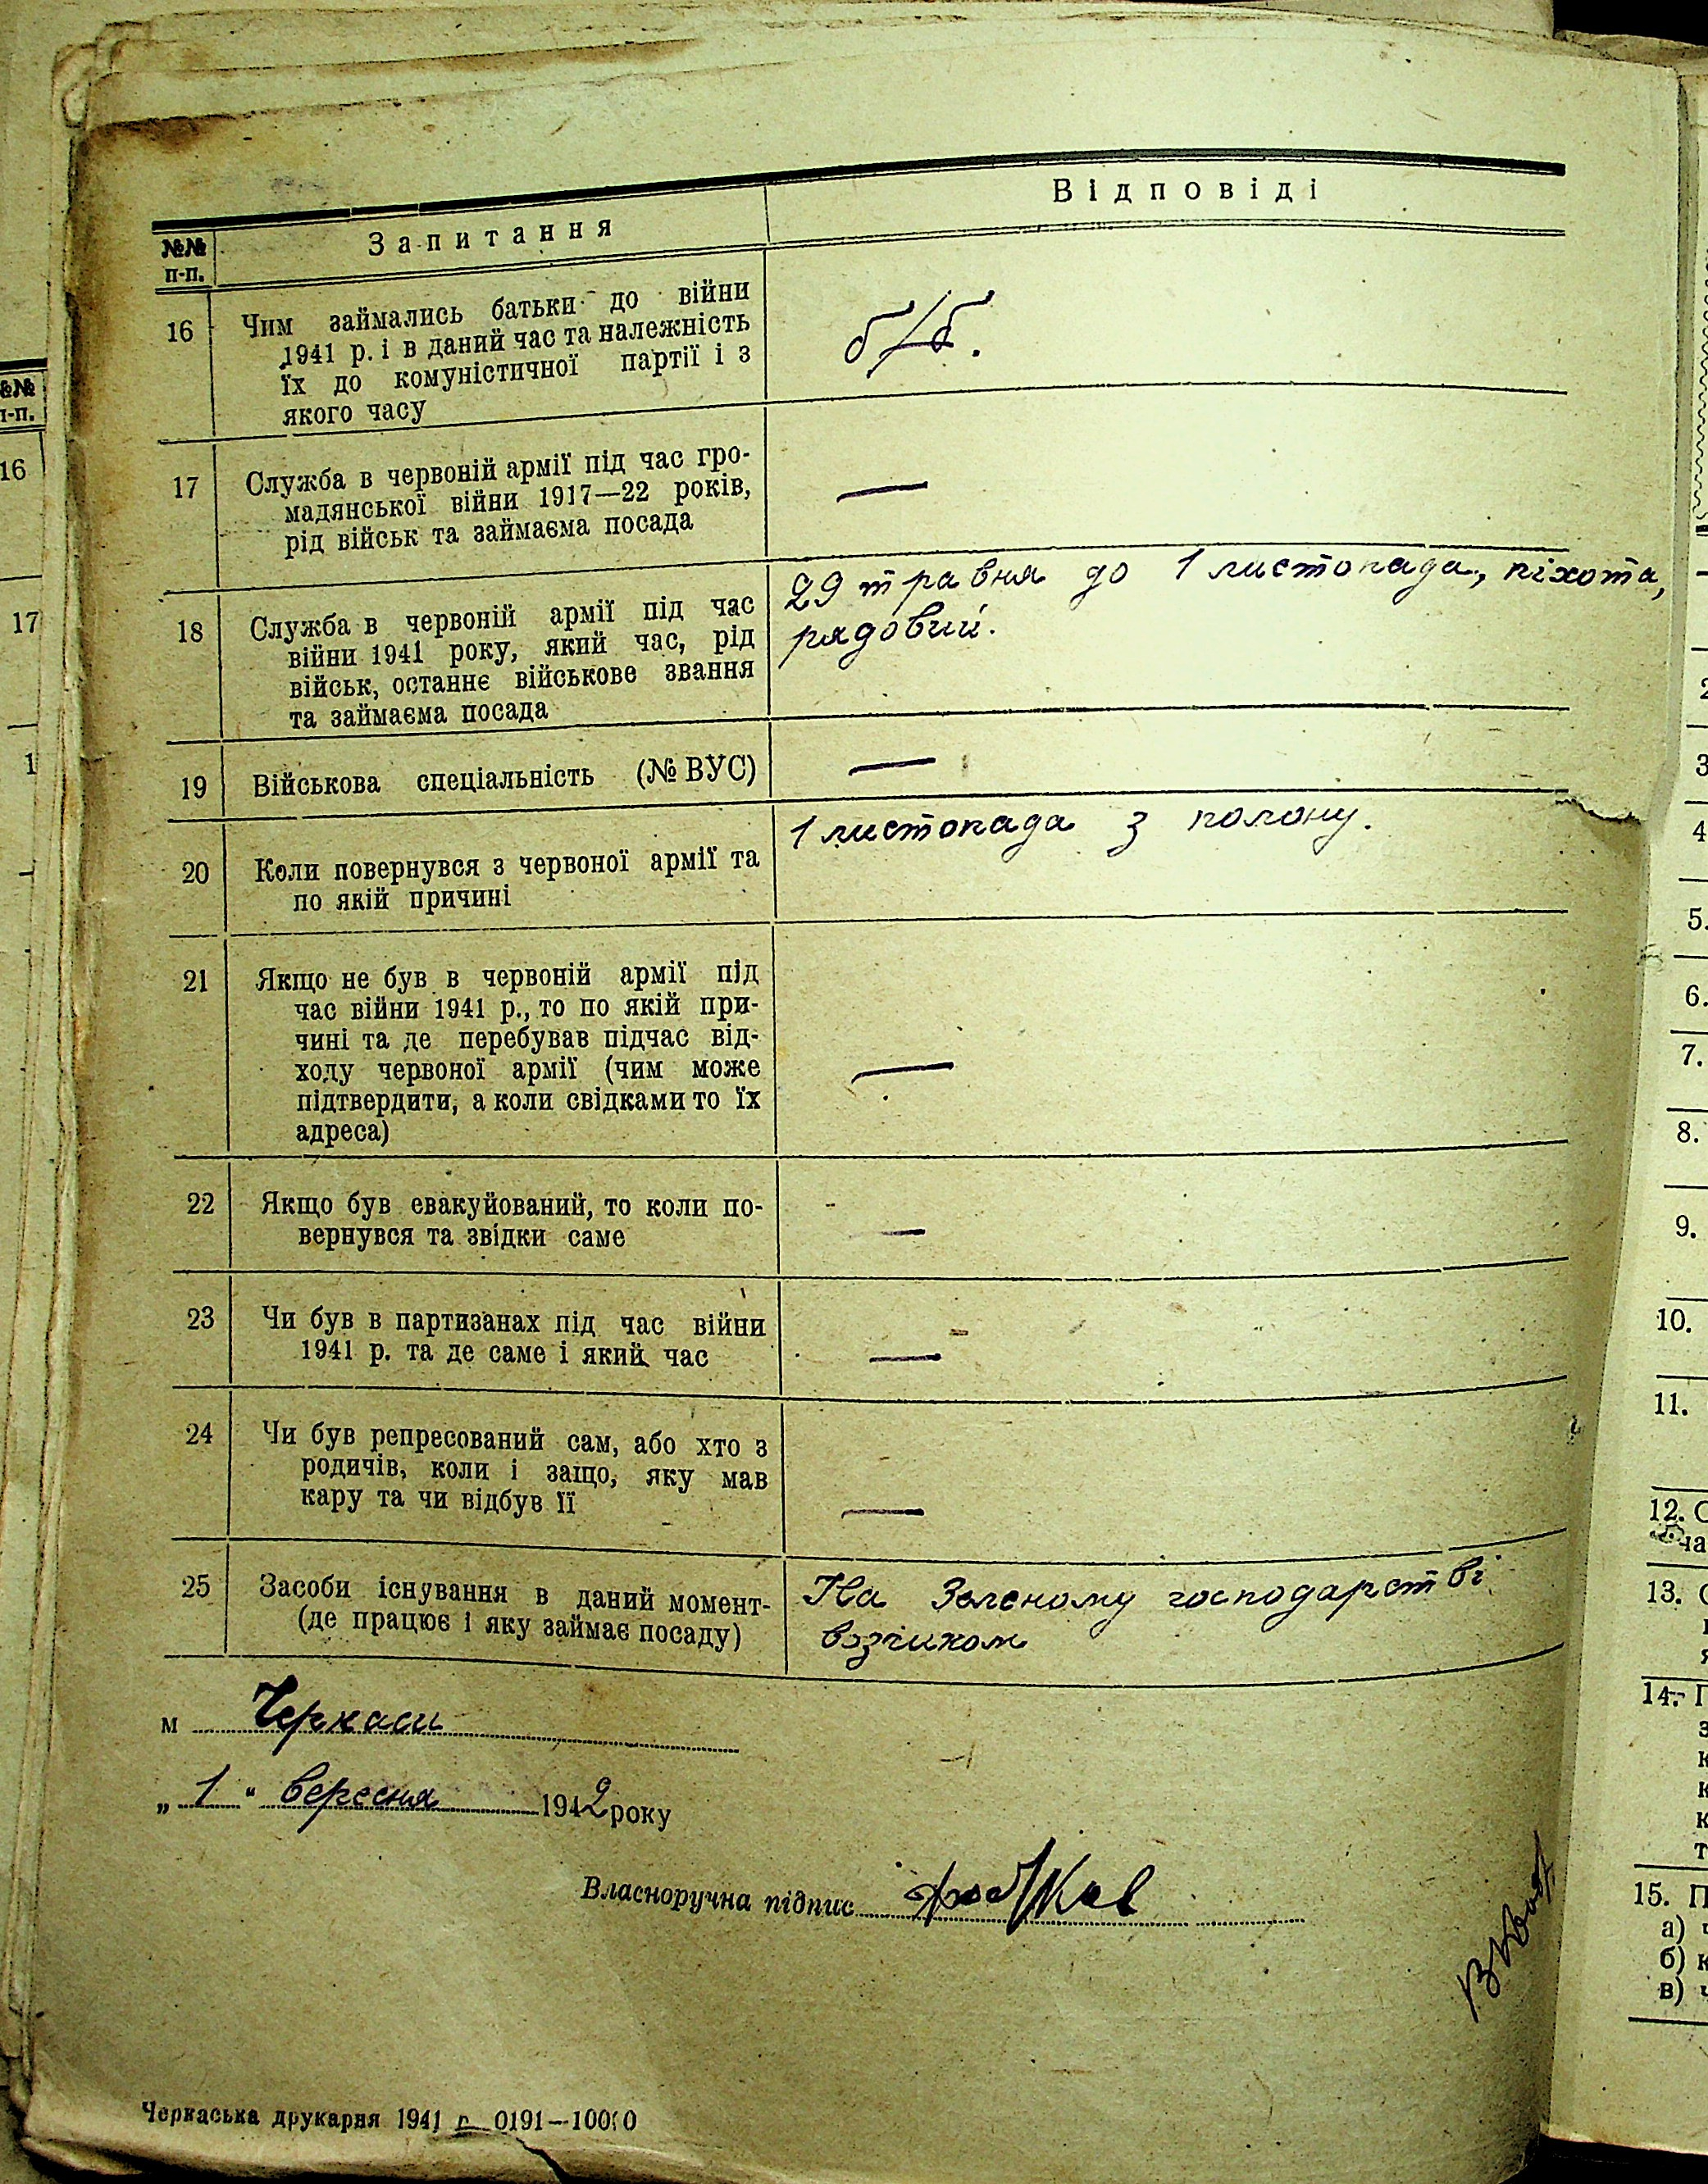 №№ п-п.
Запитання
Відповіді
16
Чим займались батьки до війни
1941 р. і в даний час та належність
їх до комуністичної партії і з
якого часу
б/б.
17
Служба в червоній армії під час гро-
мадянської війни 1917—22 років,
рід військ та займаєма посада
—
18
Служба в червоній армії під час
війни 1941 року, який час, рід
військ, останнє військове звання
та займаєма посада
29 травня до 1 листопада, піхота,
рядовий.
19
Військова спеціальність (№ ВУС)
—
20
Коли повернувся з червоної армії та
по якій причині
1 листопада з полону.
21
Якщо не був в червоній армії під
час війни 1941 р., то по якій при-
чині та де перебував підчас від-
ходу червоної армії (чим може
підтвердити, а коли свідками то їх
адреса)
—
22
Якщо був евакуйований, то коли по-
вернувся та звідки саме
—
23
Чи був в партизанах під час війни
1941 р. та де саме і який час
—
24
Чи був репресований сам, або хто з
родичів, коли і защо, яку мав
кару та чи відбув її
—
25
Засоби існування в даний момент-
(де працює і яку займає посаду)
На Зеленому господарстві
візчиком
м Черкаси
„ 1 “ вересня 1942 року
Власноручна підпис
Черкаська друкарня 1941 р. 0191—10000
№№
п-п.
16
17
1
2
3
4
5.
6.
7.
8.
9.
10.
11.
12.
13.
14.
15.
а)
б)
в)